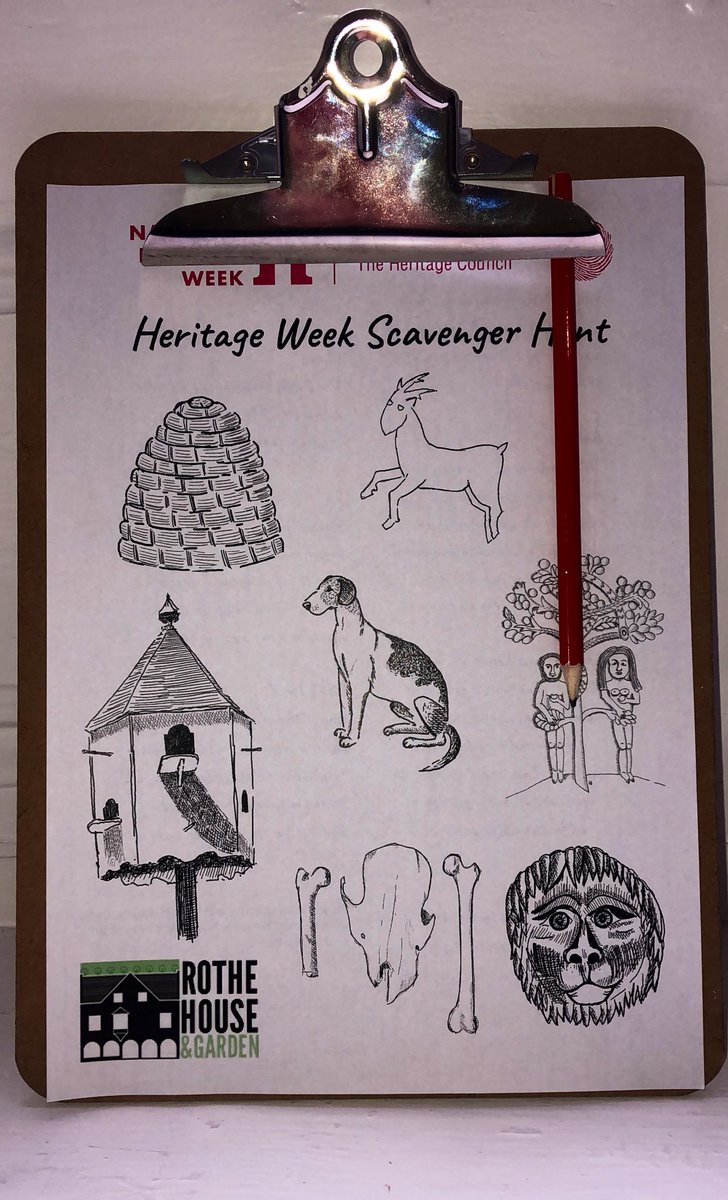 WEEK
The Heritage Council
Heritage Week Scavenger H nt
ROTHE
HOUSE
&GARDEN